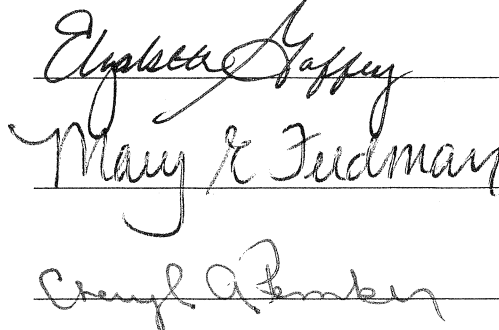 Elizabeth Gaffey
Mary E Friedman
Cheryl A